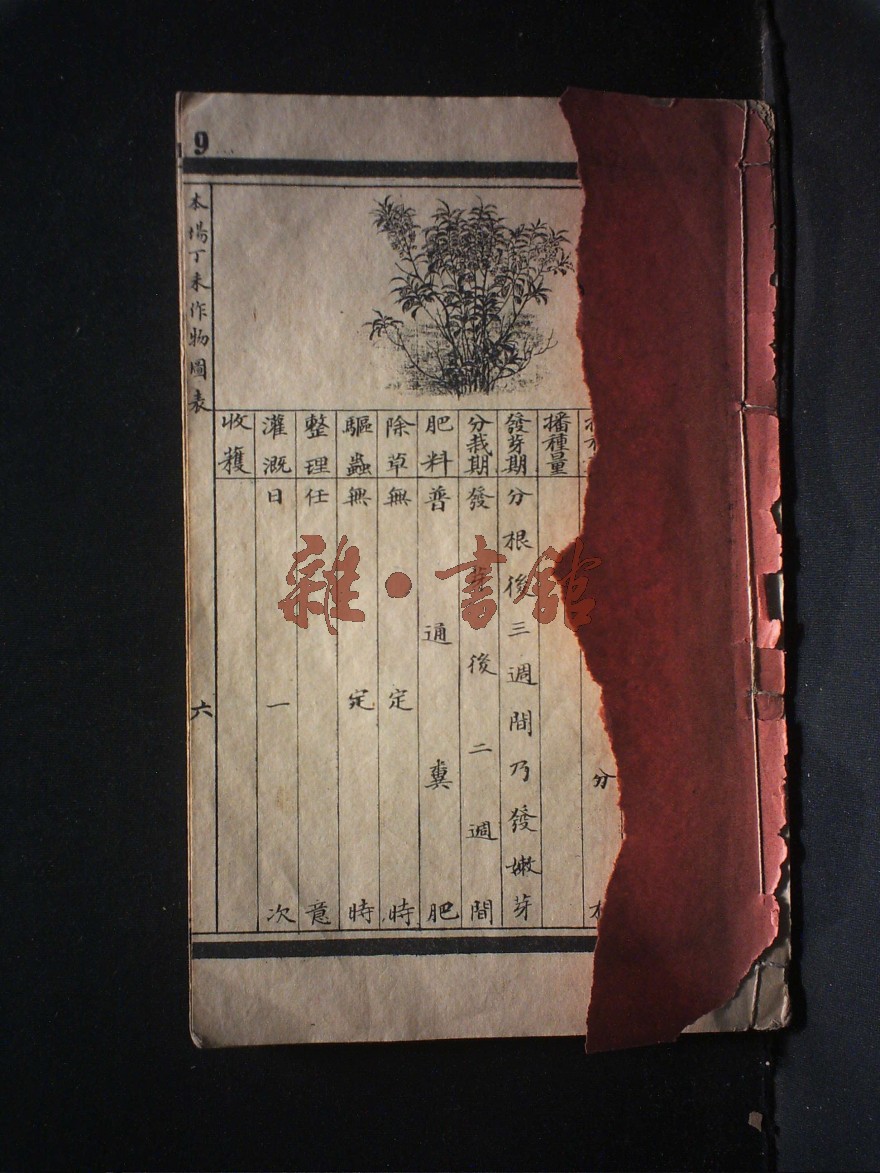 9
播種量
發芽期 分根後三週間乃發嫩芽
分栽期 發芽後二週間
肥料 普通糞肥
除草 無定時
驅蟲 無定時
整理 任意
灌溉 日一次
收穫
本場丁未作物圖表
六
分
雜·書館